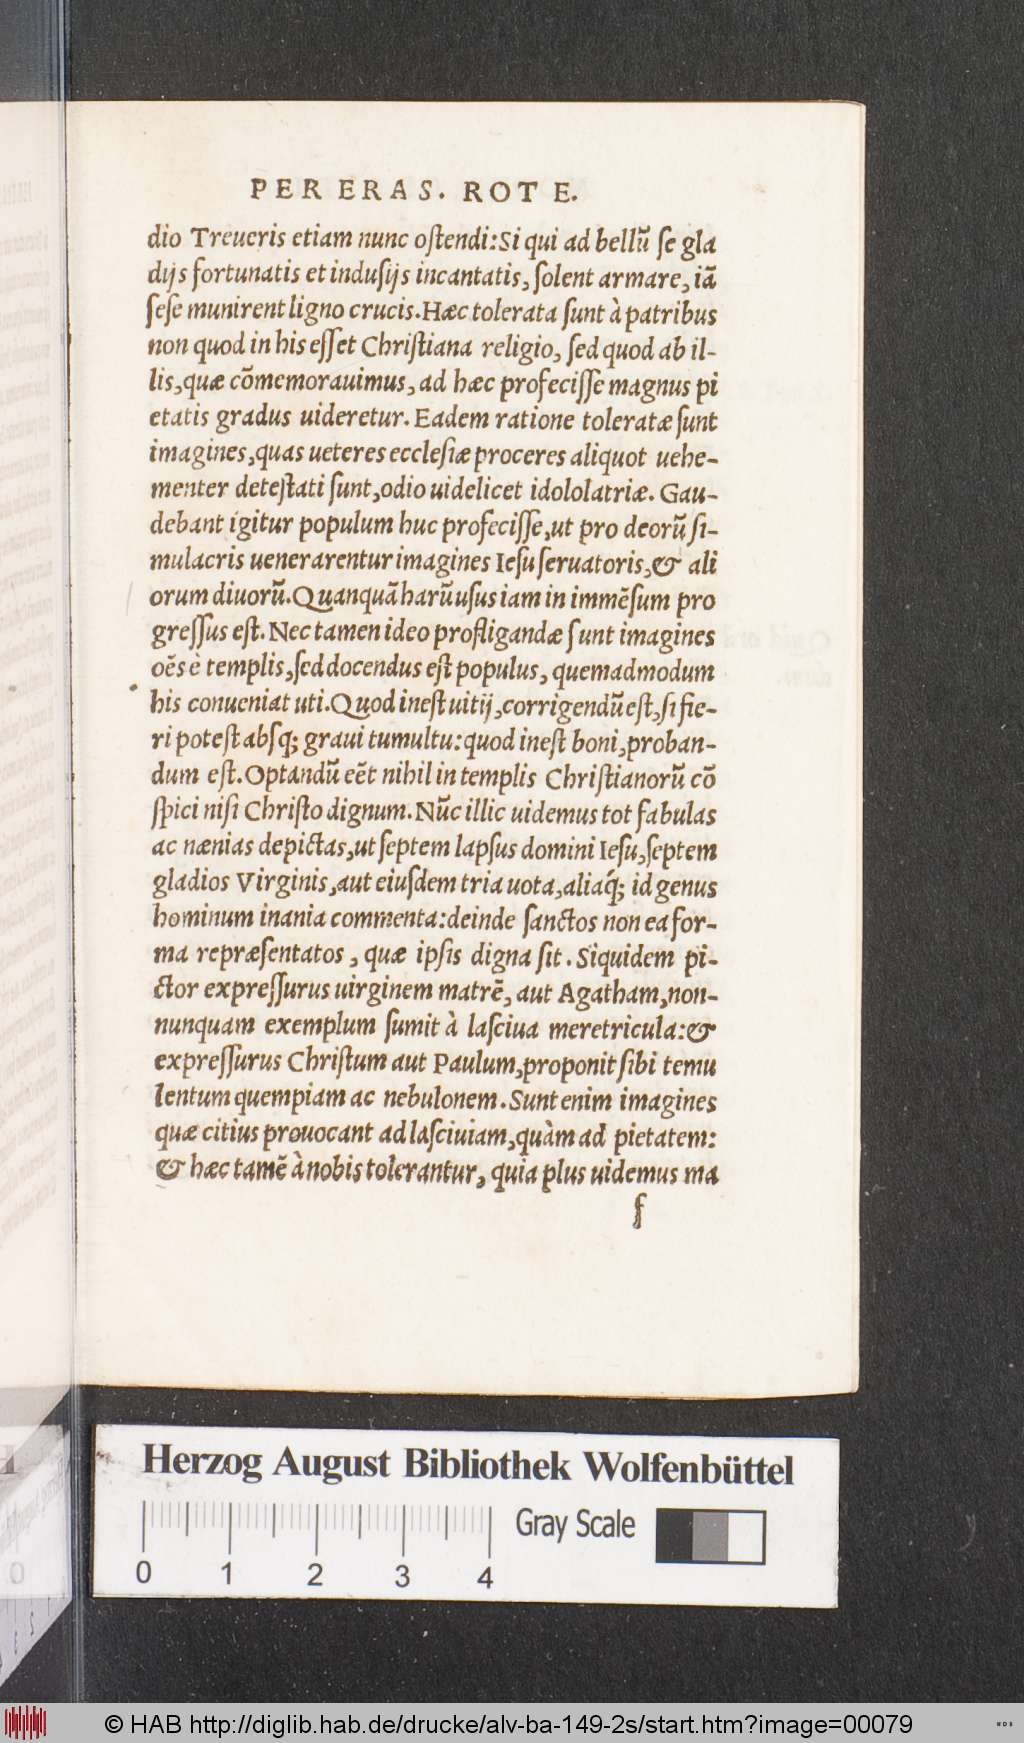 PER ERAS. ROT E.
dio Treueris etiam nunc oſtendi:Si qui ad bellũ ſe gla
dijs fortunatis et induſijs incantatis, ſolent armare, iã
ſeſe munirent ligno crucis.Hæc tolerata ſunt à patribus
non quod in his eſſet Chriſtiana religio, ſed quod ab il-
lis,quæ cõmemorauimus, ad hæc profeciſſe magnus pi
etatis gradus uideretur. Eadem ratione toleratæ ſunt
imagines,quas ueteres eccleſiæ proceres aliquot uehe-
menter deteſtati ſunt,odio uidelicet idololatriæ. Gau-
debant igitur populum huc profeciſſe,ut pro deorũ ſi-
mulacris uenerarentur imagines Ieſu ſeruatoris,& ali
orum diuorũ.Quanquã harũ uſus iam in immẽſum pro
greſſus eſt.Nec tamen ideo profligandæ ſunt imagines
oẽs è templis,ſed docendus eſt populus, quemadmodum
his conueniat uti.Quod ineſt uitij,corrigendũ eſt,ſi fie-
ri poteſt abſq; graui tumultu:quod ineſt boni,proban-
dum eſt.Optandũ eẽt nihil in templis Chriſtianorũ cõ
ſpici niſi Chriſto dignum.Nũc illic uidemus tot fabulas
ac nænias depictas,ut ſeptem lapſus domini Ieſu,ſeptem
gladios Virginis,aut eiuſdem tria uota,aliaq́; id genus
hominum inania commenta:deinde ſanctos non ea for-
ma repræſentatos, quæ ipſis digna ſit. Siquidem pi-
ctor expreſſurus uirginem matrẽ, aut Agatham,non-
nunquam exemplum ſumit à laſciua meretricula:&
expreſſurus Chriſtum aut Paulum,proponit ſibi temu
lentum quempiam ac nebulonem.Sunt enim imagines
quæ citius prouocant ad laſciuiam,quàm ad pietatem:
& hæc tamẽ à nobis tolerantur, quia plus uidemus ma
f
Herzog August Bibliothek Wolfenbüttel
Gray Scale
0 1 2 3 4
© HAB http://diglib.hab.de/drucke/alv-ba-149-2s/start.htm?image=00079